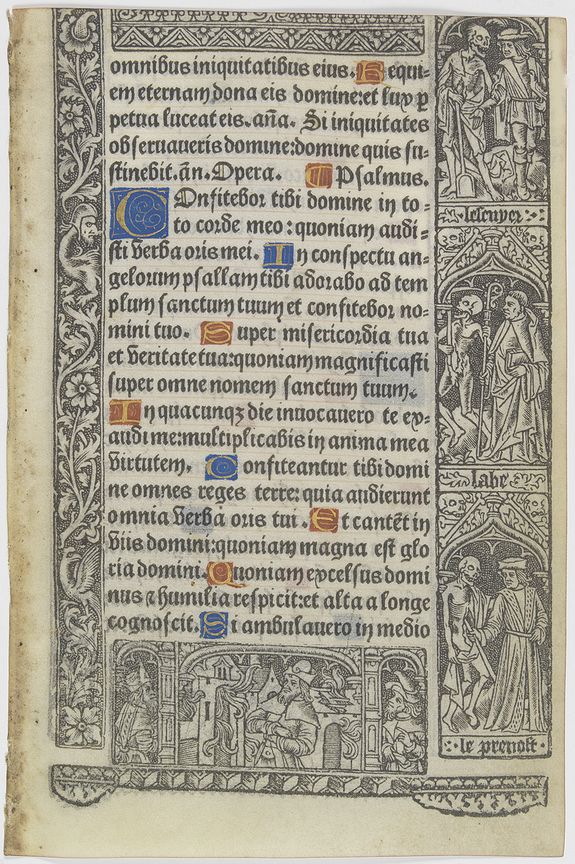 omnibus iniquitatibus eius. Requi-
em eternam dona eis domine: et lux p̲
petua luceat eis. aña. Si iniquitates
obseruaueris domine: domine quis su-
stinebit. añ. Opera. Psalmus.
Confitebor tibi domine in to-
to corde meo: quoniam audi-
sti verba oris mei. In conspectu an-
gelorum psallam tibi adorabo ad tem
plum sanctum tuum et confitebor no-
mini tuo. Super misericordia tua
et veritate tua: quoniam magnificasti
super omne nomem sanctum tuum.
In quacunqꝫ die inuocauero te ex-
audi me: multiplicabis in anima mea
virtutem. Confiteantur tibi domi
ne omnes reges terre: quia audierunt
omnia verba oris tui. Et cantēt in
viis domini: quoniam magna est glo
ria domini. Quoniam excelsus domi
nus ⁊ humilia respicit: et alta a longe
cognoscit. Si ambulauero in medio
lescuyer
labe
le preuost